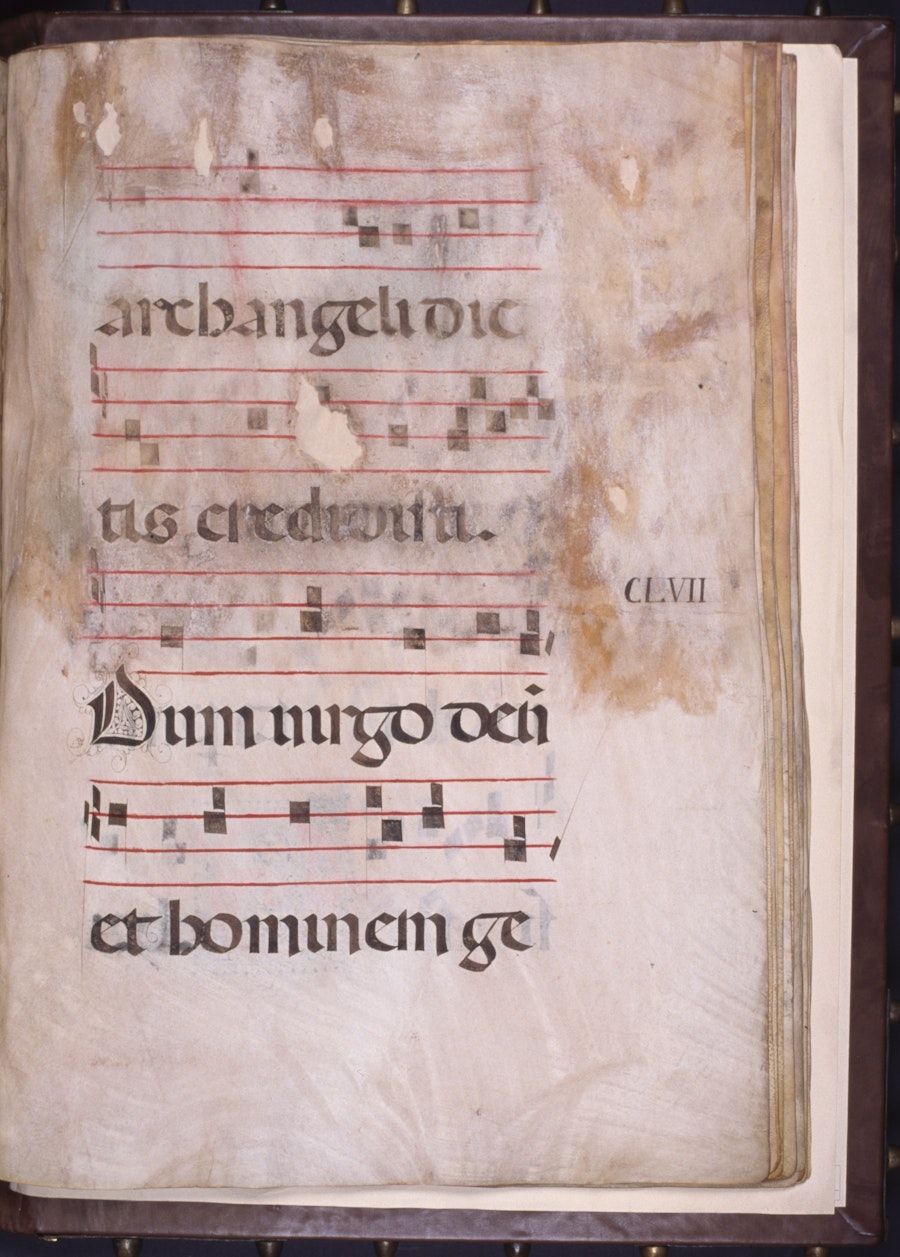 archangeli dic
tis credidisti.
CLVII
Dum uirgo deū
et hominem ge